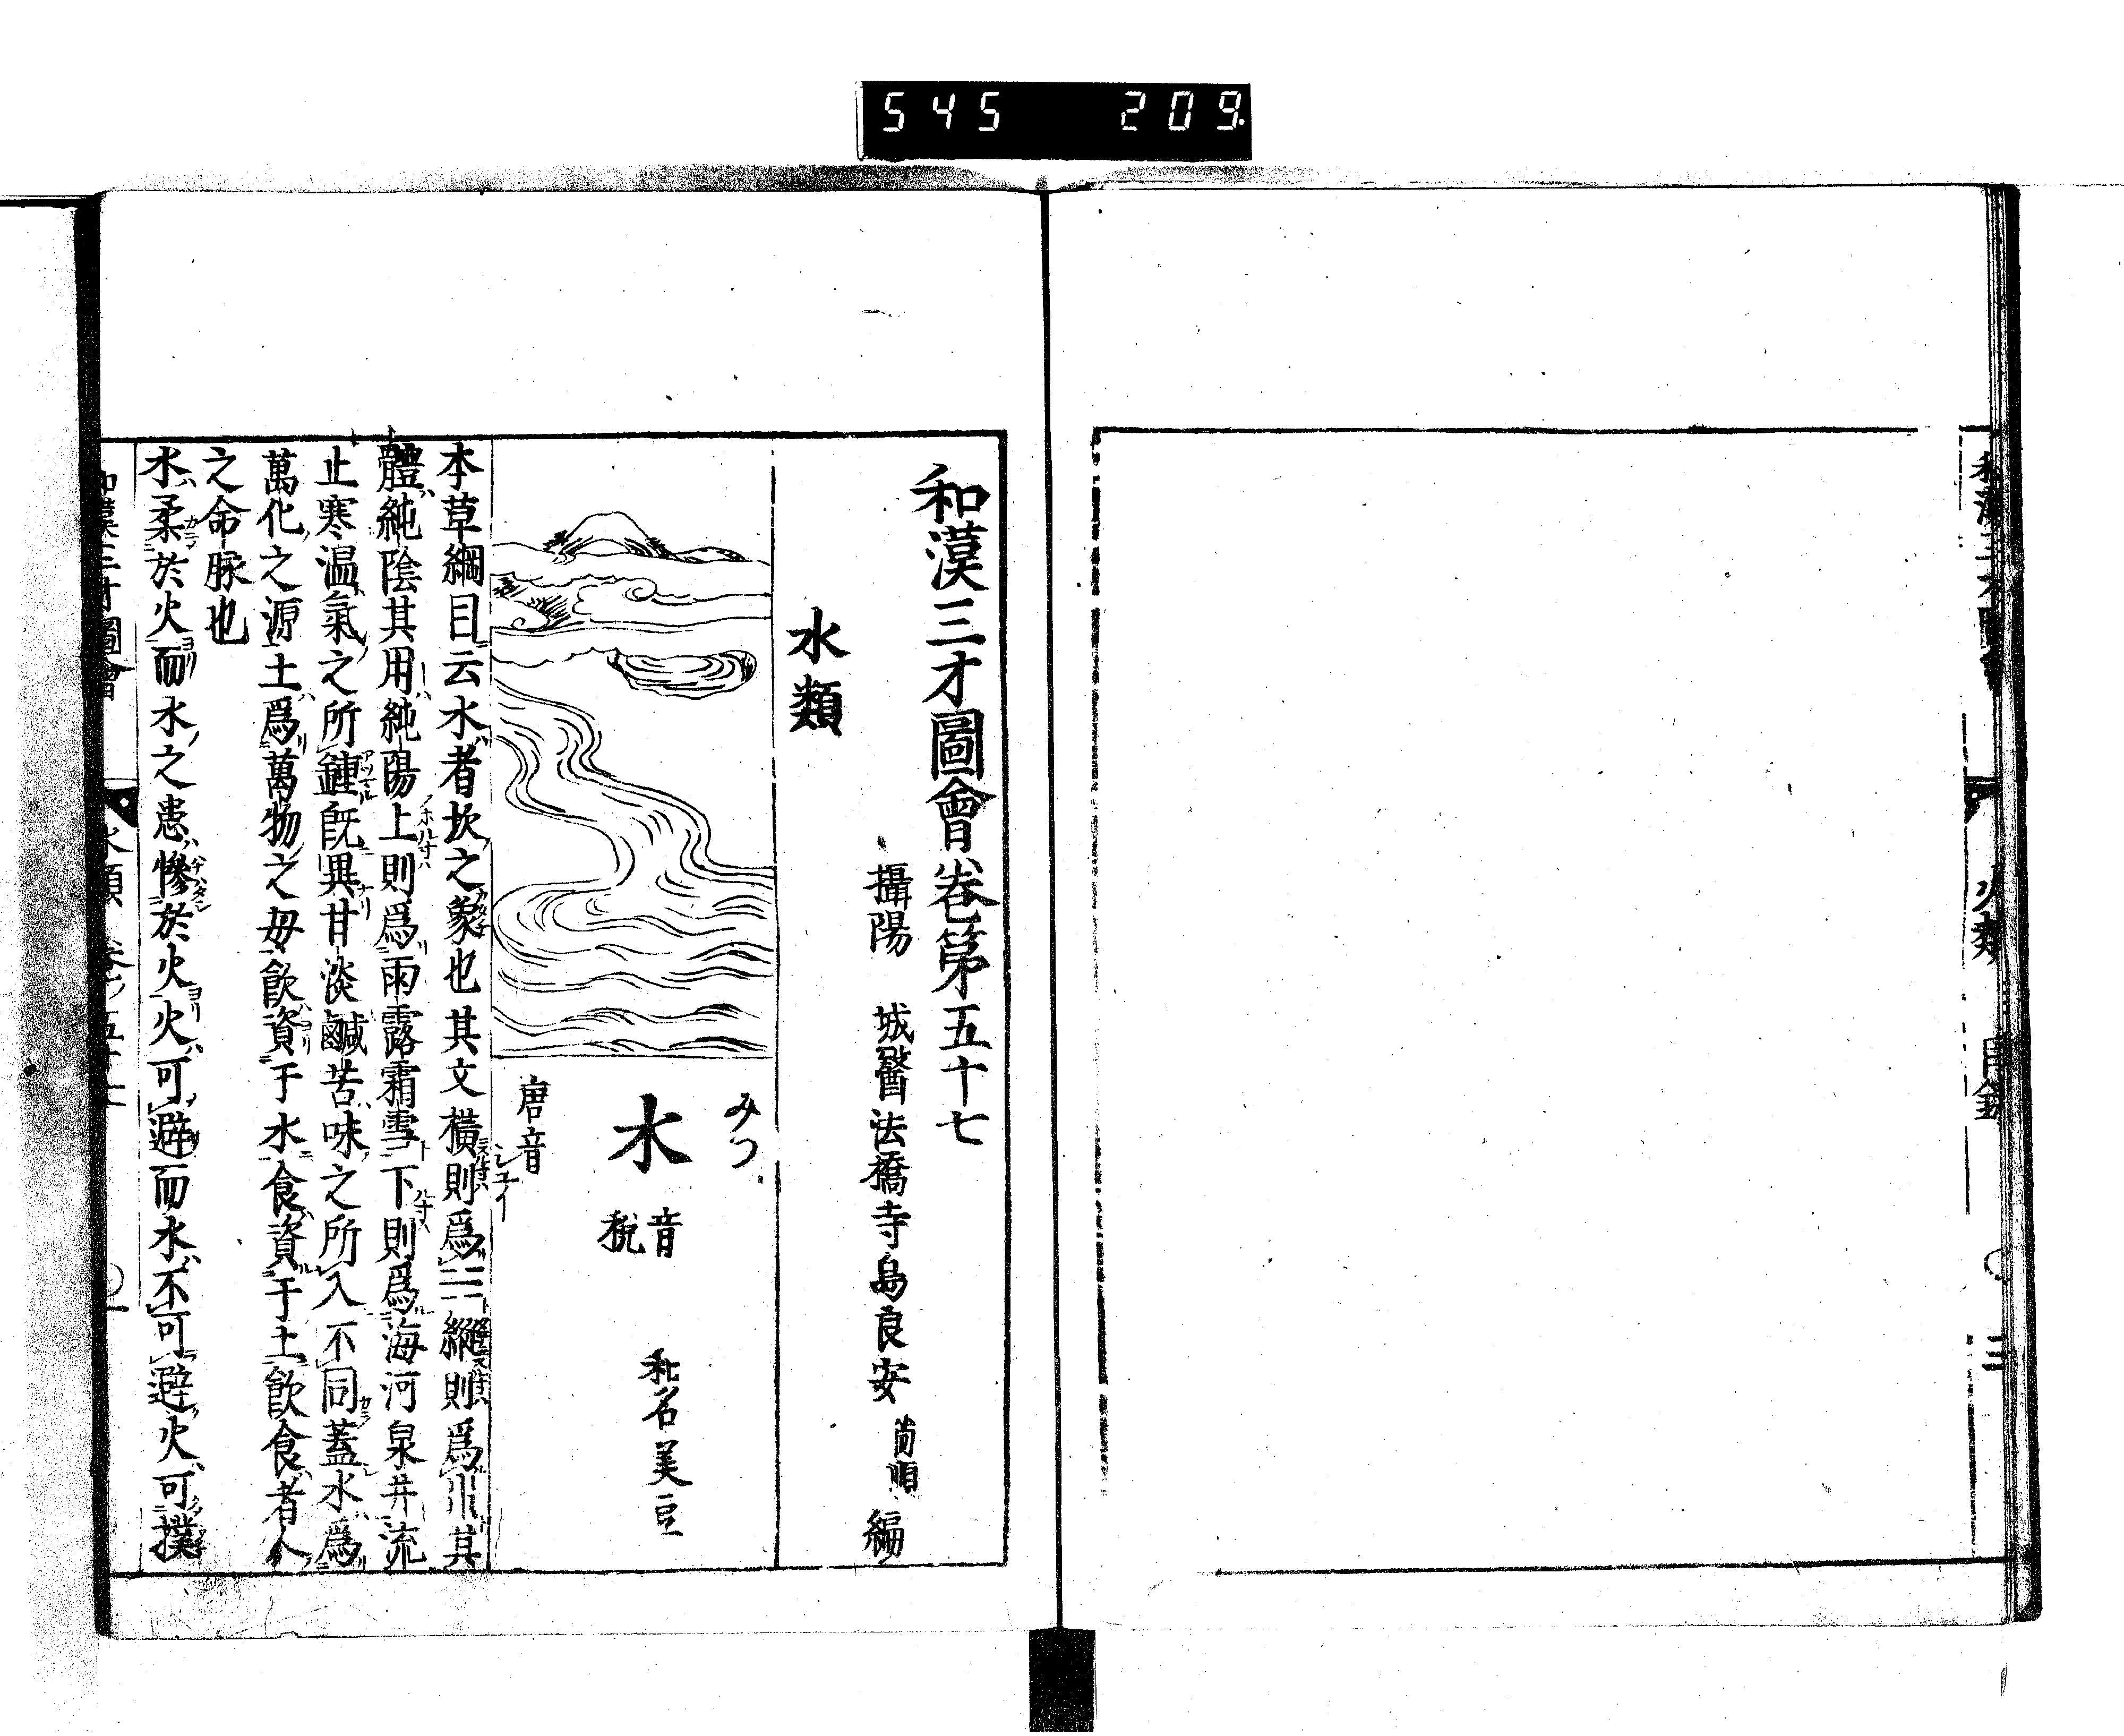 545 209
和漢三才圖會
火類
目録
三
和漢三才圖會卷第五十七
攝陽 城醫法橋寺島良安尚順編
水類
みつ
水 音稅
和名美豆
唐音シユイ
本草綱目云水者坎之象也其文橫則爲☵縱則爲川其
體純陰其用純陽上則爲雨露霜雪下則爲海河泉井流
止寒温氣之所鍾既異甘淡鹹苦味之所入不同蓋水爲
萬化之源土爲萬物之母飲資于水食資于土飲食者人
之命脉也
水柔於火而水之患慘於火火可避而水不可避火可撲
和漢三才圖會
水類 卷ノ五十七
一